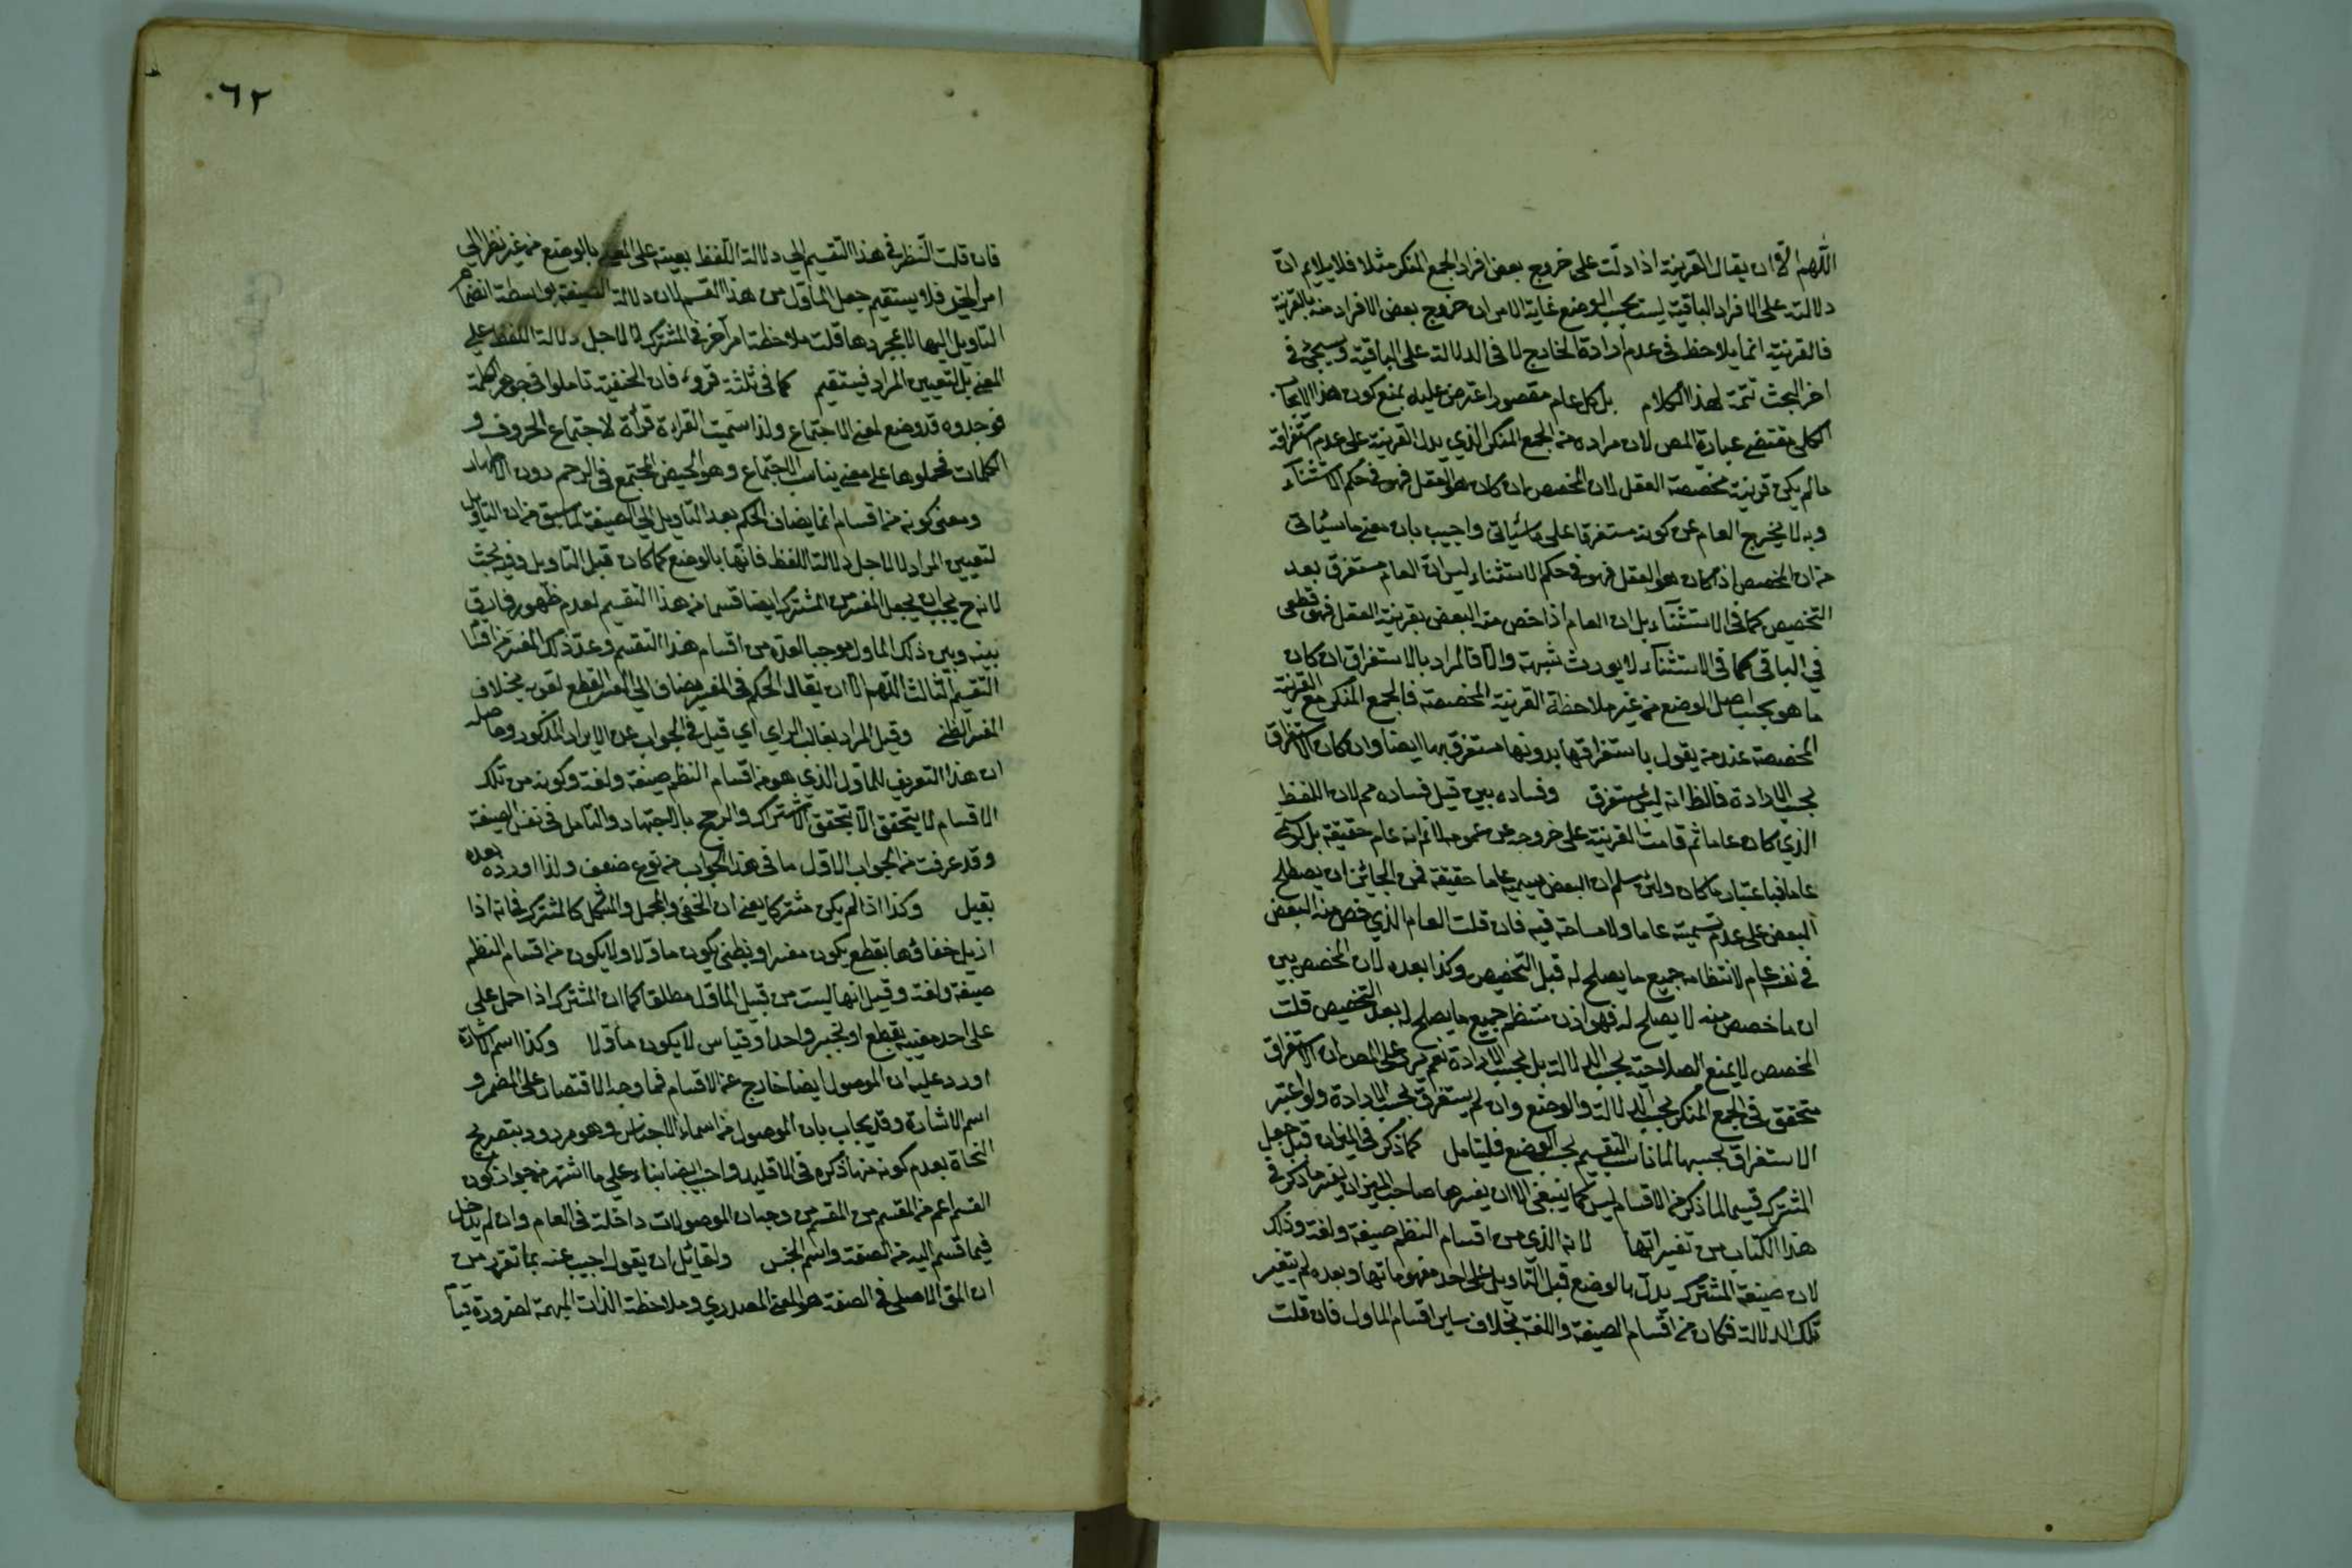 اللهم الا ان يقال القرينة اذا دلت على خروج بعض افراد الجمع المنكر مثلا فلا يلايم ان
دلالته على الافراد الباقية ليست بحسب الوضع غاية الامر ان خروج بعض الافراد منه بالقرينة
فالقرينة انما يلاحظ في عدم ارادة الخارج لا في الدلالة على الباقية وسيجئ في
اخر البحث تتمة لهذا الكلام بل كل عام مقصور اعترض عليه بمنع كون هذا الايجاب
الكلي مقتضى عبارة المص لان مراده من الجمع المنكر الذي يدل القرينة على عدم استغراقه
ما لم يكن قرينة مخصصة العقل لان المخصص ان كان هو العقل فهو في حكم الاستثناء
وبه لا يخرج العام عن كونه مستغرقا على ما سيأتي واجيب بان معنى ما سيأتي
من ان المخصص اذا كان هو العقل فهو في حكم الاستثناء ليس ان العام مستغرق بعد
التخصيص كما في الاستثناء بل ان العام اذا خص منه البعض بقرينة العقل فهو قطعي
في الباقي كما في الاستثناء لا يورث شبهة والا فالمراد بالاستغراق ان كان
ما هو بحسب اصل الوضع من غير ملاحظة القرينة المخصصة فالجمع المنكر مع القرينة
المخصصة عند من يقول باستغراقها بدونها مستغرق بها ايضا وان كان الاستغراق
بحسب الارادة فالظ انه ليس بمستغرق وفساده بين قيل فساده مم لان اللفظ
الذي كان عاما ثم قامت القرينة على خروجه عن عمومه لا نم انه عام حقيقة بل كونه
عاما فباعتبار ما كان ولئن سلم ان البعض يسميه عاما حقيقة فمن الجائز ان يصطلح
البعض على عدم تسميته عاما ولا مساحة فيه فان قلت العام الذي خص منه البعض
في نفسه عام لانتظامه جميع ما يصلح له قبل التخصيص وكذا بعده لان المخصص بين
ان ما خصص منه لا يصلح له فهو اذن منتظم جميع ما يصلح له بعد التخصيص قلت
المخصص لا يمنع الصلاحية بحسب الدلالة بل بحسب الارادة نعم يرد على المص ان الاستغراق
متحقق في الجمع المنكر بحسب الدلالة والوضع وان لم يستغرق بحسب الارادة ولو اعتبر
الاستغراق بحسبها لما ناسب التقسيم بحسب الوضع فليتامل كما ذكر في الميزان قبل جعل
المشترك قسيما لما ذكر من الاقسام ليس كما ينبغي الا ان يفسرها صاحب الميزان بغير ما ذكر في
هذا الكتاب من تفسيراتها لانه الذي من اقسام النظم صيغة ولغة وذلك
لان صيغة المشترك يدل بالوضع قبل التاويل على احد مفهوماتها وبعده لم يتغير
تلك الدلالة فكان من اقسام الصيغة واللغة بخلاف ساير اقسام الماول فان قلت
٦٢
فان قلت النظر في هذا التقسيم الى دلالة اللفظ بعينه على المعنى بالوضع من غير نظر الى
امر آخر فلا يستقيم جعل المأول من هذا القسم لان دلالة الصيغة بواسطة انضمام
التاويل اليها لا بمجردها قلت ملاحظة امر آخر في المشترك لا لاجل دلالة اللفظ على
المعنى بل لتعيين المراد فيستقيم كما في ثلثة قروء فان الحنفية تاملوا في جوهر الكلمة
فوجدوه قد وضع لمعنى الاجتماع ولذا سميت القراءة قرأة لاجتماع الحروف و
الكلمات فحملوها على معنى يناسب الاجتماع وهو الحيض المجتمع في الرحم دون الاطهار
ومعنى كونه من اقسام انما يضاف الحكم بعد التاويل الى الصيغة لما سبق من ان التاويل
لتعيين المراد لا لاجل دلالة اللفظ فانها بالوضع كما كان قبل التاويل وفيه بحث
لانه ح يجب ان يجعل المفسر من المشترك ايضا قسما من هذا التقسيم لعدم ظهور فارق
بينه وبين ذلك الماول موجبا لعده من اقسام هذا التقسيم وعد ذلك المفسر من اقسام
التقسيم الثالث اللهم الا ان يقال الحكم في المفسر مضاف الى المفسر القطعي لقوته بخلاف
المفسر الظني وقيل المراد بغالب الراي اي قيل في الجواب عن الايراد المذكور وحاصله
ان هذا التعريف للماول الذي هو من اقسام النظم صيغة ولغة وكونه من تلك
الاقسام لا يتحقق الا بتحقق الاشتراك والترجح بالاجتهاد والتامل في نفس الصيغة
وقد عرفت من الجواب الاول ما في هذا الجواب من نوع ضعف ولذا اورده بعده
بقيل وكذا اذا لم يكن مشتركا يعني ان الخفي والمجمل والمشكل كالمشترك فانه اذا
ازيل خفاؤها بقطع يكون مفسرا وبظني يكون ماولا ولا يكون من اقسام النظم
صيغة ولغة وقيل انها ليست من قبيل الماول مطلقا كما ان المشترك اذا حمل على
على احد معنييه بقطع او بخبر واحد او قياس لا يكون مأولا وكذا اسم الاشارة
اورد عليه ان الموصول ايضا خارج عن الاقسام فما وجه الاقتصار على المضمر و
اسم الاشارة وقد يجاب بان الموصول من اسماء الاجناس وهو مردود بتصريح
النحاة بعدم كونه منها ذكره في الاقليد واجيب ايضا بناء على ما اشتهر من جواز كون
القسم اعم من المقسم من وجه بان الموصولات داخلة في العام وان لم يدخل
فيما قسم اليه من الصفة واسم الجنس ولقائل ان يقول اجيب عنه بما تقرر من
ان المعنى الاصلي في الصفة هو المعنى المصدري وملاحظة الذات المبهمة لضرورة